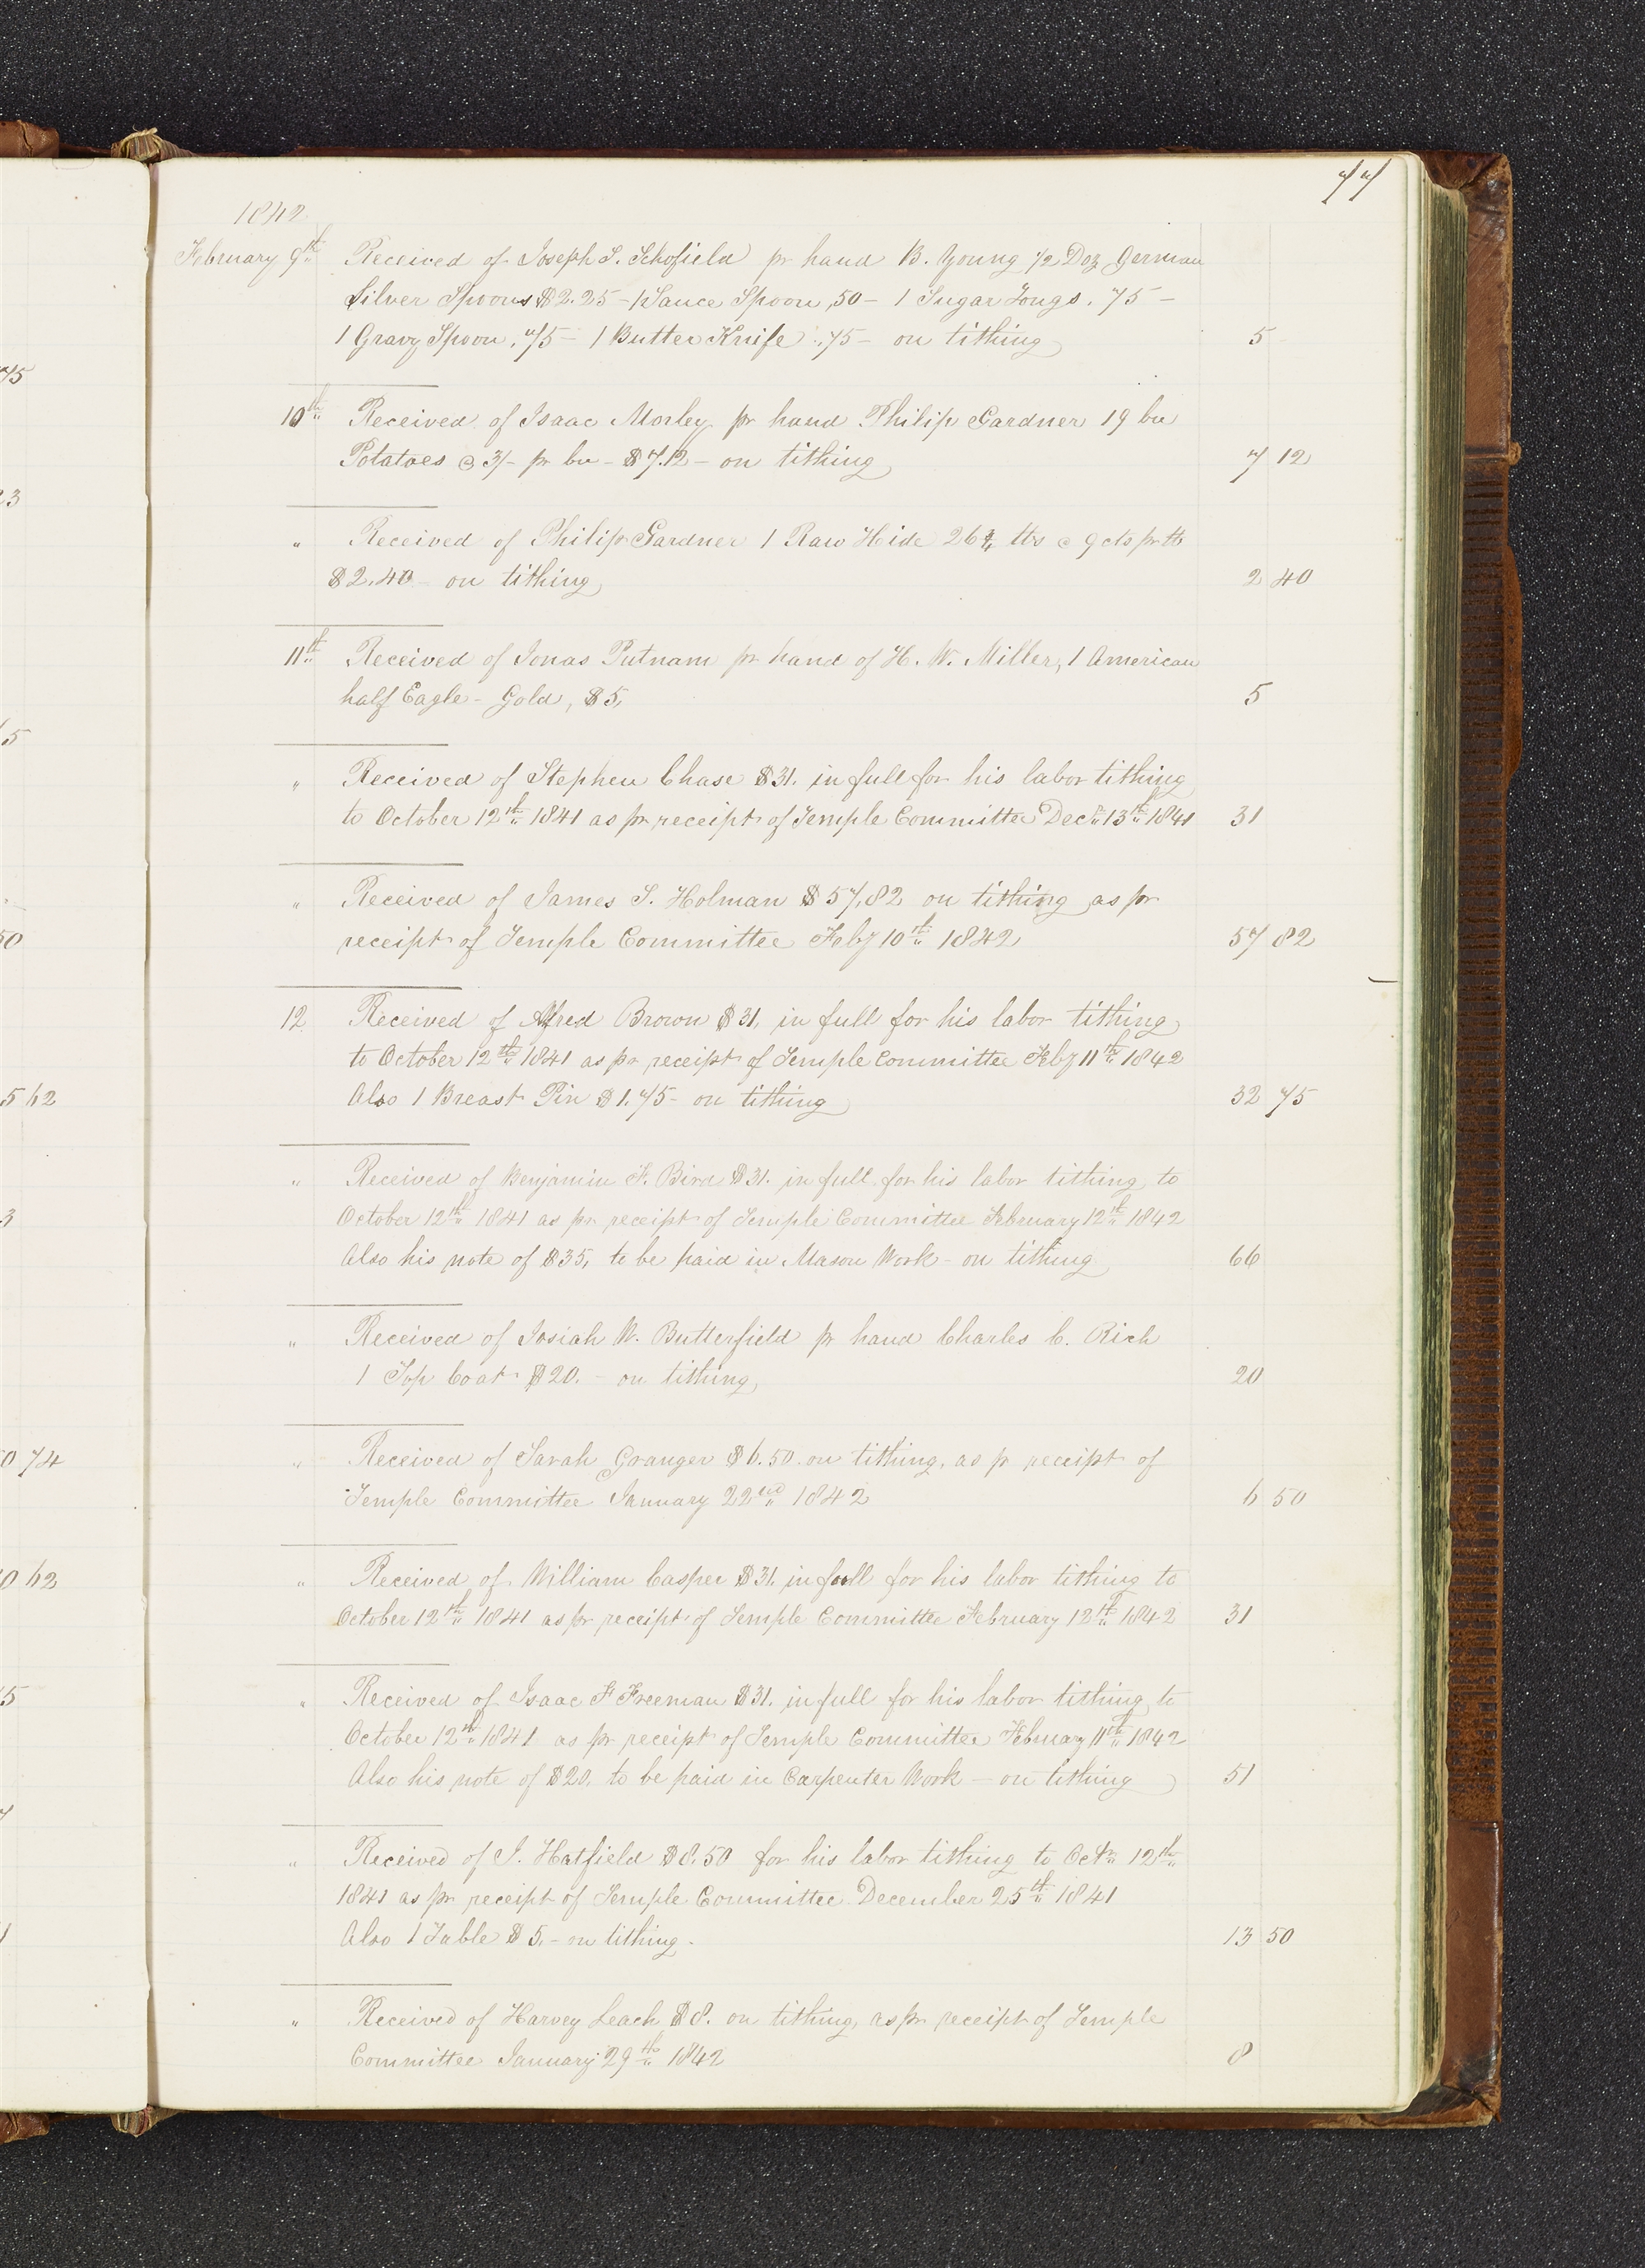 77
1842
February 9th Received of Joseph S. Schofield pr hand B. Young 1/2 Doz German
Silver Spoons $2.25 – 1 Sauce Spoon ,50 – 1 Sugar Tongs . 75 –
1 Gravy Spoon . 75 – 1 Butter Knife . 75 – on tithing 5
10th Received of Isaac Morley pr hand Philip Gardner 19 bu
Potatoes @ 3/– pr bu – $7.12 – on tithing 7 12
" Received of Philip Gardner 1 Raw Hide 26 3/4 lbs @ 9 cts pr lb
$2.40 – on tithing 2 40
11th Received of Jonas Putnam pr hand of H. W. Miller, 1 American
half Eagle – Gold, $5, 5
" Received of Stephen Chase $31. in full for his labor tithing
to October 12th 1841 as pr receipt of Temple Committee Decr 13th 1841 31
" Received of James S. Holman $57,82 on tithing as pr
receipt of Temple Committee Feby 10th 1842 57 82
12 Received of Alfred Brown $31, in full for his labor tithing
to October 12th 1841 as pr receipt of Temple Committee Feby 11th 1842
Also 1 Breast Pin $1.75 – on tithing 32 75
" Received of Benjamin F. Bird $31. in full for his labor tithing to
October 12th 1841 as pr receipt of Temple Committee February 12th 1842
Also his note of $35, to be paid in Mason Work – on tithing 66
" Received of Josiah W. Butterfield pr hand Charles C. Rich
1 Top Coat $20. – on tithing, 20
" Received of Sarah Granger $6.50 on tithing, as pr receipt of
Temple Committee January 22nd 1842 6 50
" Received of William Casper $31. in full for his labor tithing to
October 12th 1841 as pr receipt of Temple Committee February 12th 1842 31
" Received of Isaac F Freeman $31. in full for his labor tithing to
October 12th 1841 as pr receipt of Temple Committee February 11th 1842
Also his note of $20. to be paid in Carpenter Work – on tithing 51
" Received of J. Hatfield $8.50 for his labor tithing to Octr 12th
1841 as pr receipt of Temple Committee December 25th 1841
Also 1 Table $5. – on tithing. 13 50
" Received of Harvey Leach $8. on tithing, as pr receipt of Temple
Committee January 29th 1842 8